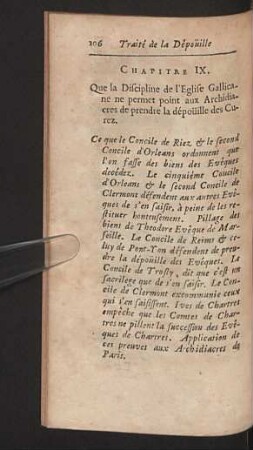 106 Traité de la Dépoüille
CHAPITRE IX.
Que la Discipline de l'Eglise Gallica-
ne ne permet point aux Archidia-
cres de prendre la dépoüille des Cu-
rez.
Ce que le Concile de Riez & le second
Concile d'Orleans ordonnent que
l'on fasse des biens des Evêques
decédez. Le cinquiéme Concile
d'Orleans & le second Concile de
Clermont défendent aux autres Evê-
ques de s'en saisir, à peine de les re-
stituer honteusement. Pillage des
biens de Theodore Evêque de Mar-
seille. Le Concile de Reims & ce-
luy de Pont-Yon défendent de pren-
dre la dépoüille des Evêques. Le
Concile de Trosly, dit que c'est un
sacrilege que de s'en saisir. Le Con-
cile de Clermont excommunie ceux
qui s'en saisissent. Ives de Chartres
empêche que les Comtes de Char-
tres ne pillent la succession des Evê-
ques de Chartres. Application de
ces preuves aux Archidiacres de
Paris.